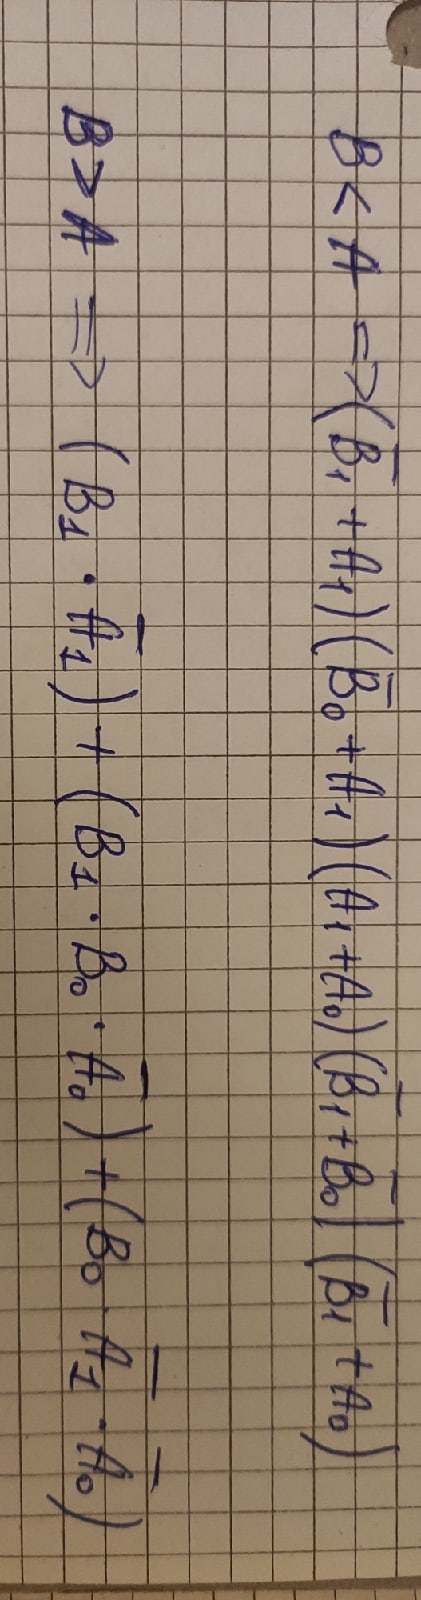 B < A => (B̅₁ + A₁)(B̅₀ + A₁)(A₁ + A₀)(B̅₁ + B̅₀)(B̅₁ + A₀)
B > A => (B₁ · A̅₁) + (B₁ · B₀ · A̅₀) + (B₀ · A̅₁ · A̅₀)